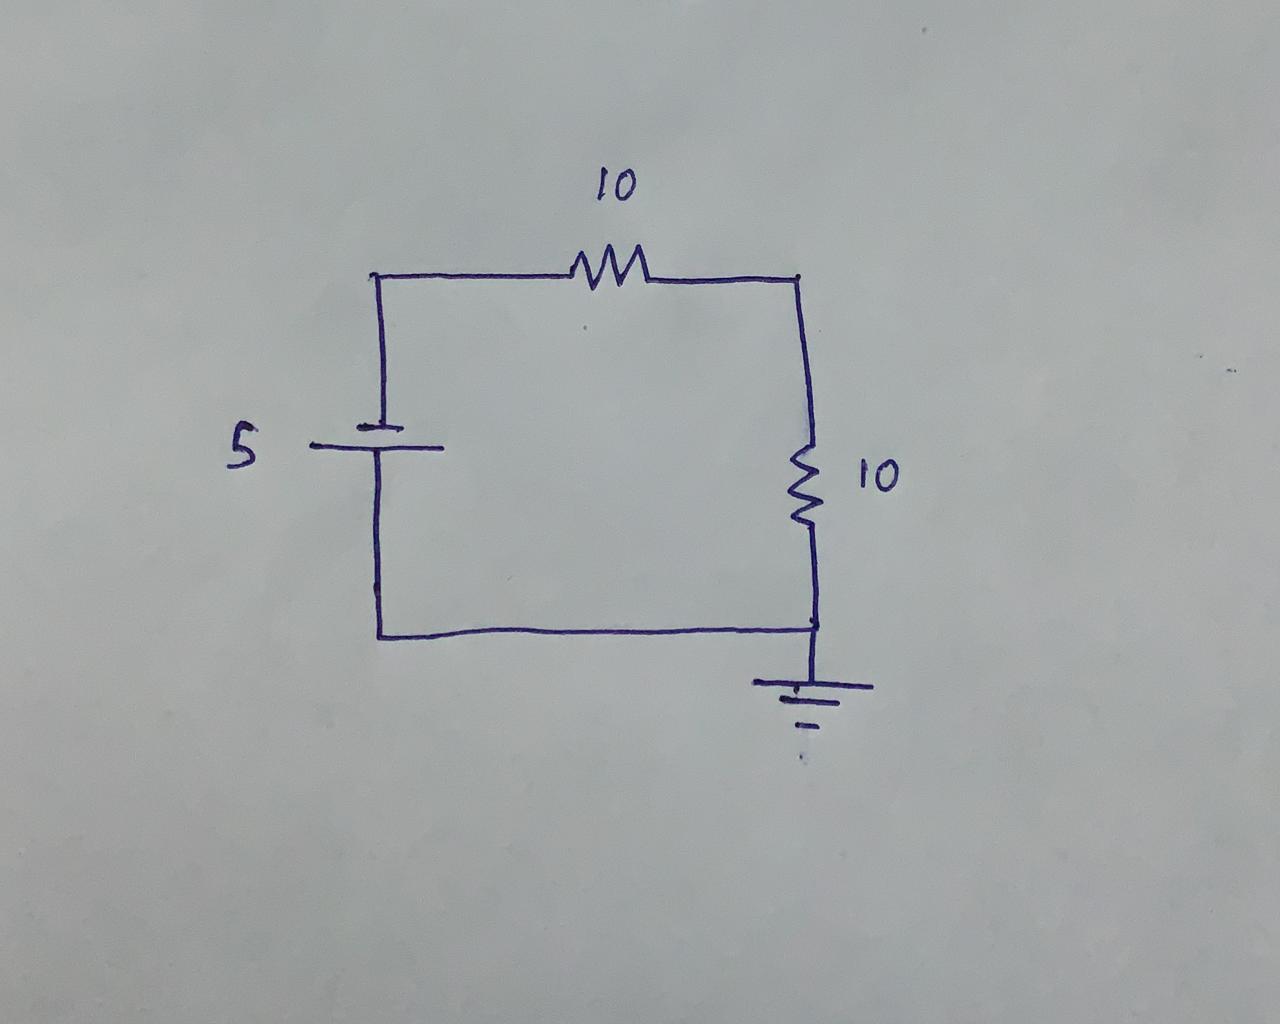 10
5
10